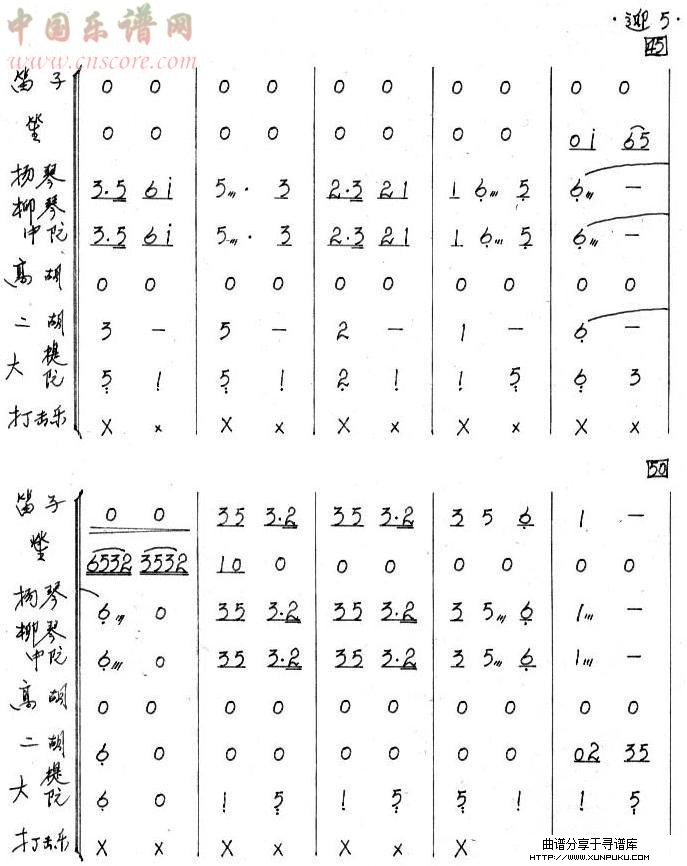 中国乐谱网
www.cnscore.com
·迎5·
45
笛子 0 0 | 0 0 | 0 0 | 0 0 | 0 0
笙 0 0 | 0 0 | 0 0 | 0 0 | 0i 65
扬琴 3.5 6i | 5 . 3 | 2.3 21 | 1 6 5 | 6 —
柳琴
中阮 3.5 6i | 5 . 3 | 2.3 21 | 1 6 5 | 6 —
高胡 0 0 | 0 0 | 0 0 | 0 0 | 0 0
二胡 3 — | 5 — | 2 — | 1 — | 6 —
大提
阮 5 1 | 5 1 | 2 1 | 1 5 | 6 3
打击乐 X x | X x | X x | X x | X x
50
笛子 0 0 | 35 3.2 | 35 3.2 | 3 5 6 | 1 —
笙 6532 3532 | 10 0 | 0 0 | 0 0 | 0 0
扬琴 6 0 | 35 3.2 | 35 3.2 | 3 5 6 | 1 —
柳琴
中阮 6 0 | 35 3.2 | 35 3.2 | 3 5 6 | 1 —
高胡 0 0 | 0 0 | 0 0 | 0 0 | 0 0
二胡 6 0 | 0 0 | 0 0 | 0 0 | 02 35
大提
阮 6 0 | 1 5 | 1 5 | 5 1 | 1 5
打击乐 X x | X x | X x | X
曲谱分享于寻谱库
HTTP://WWW.XUNPUKU.COM